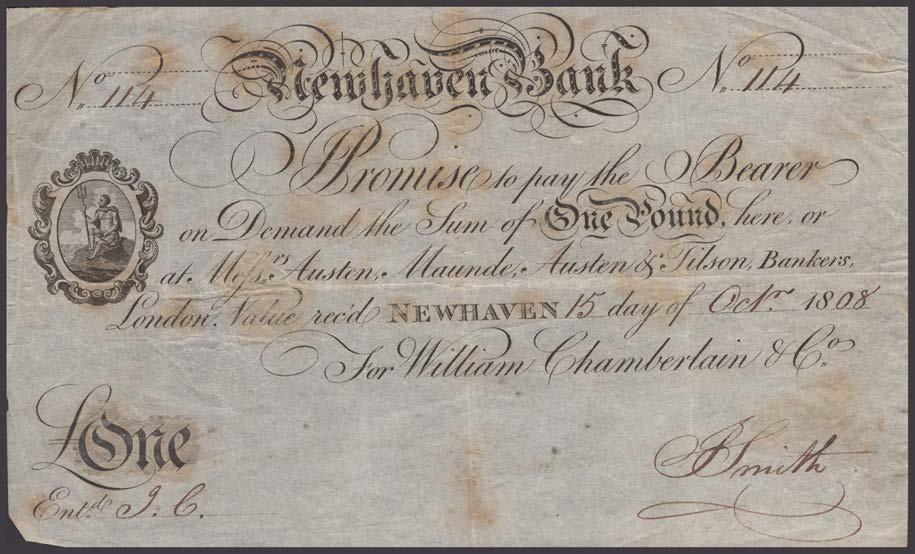 No. 114 Newhaven Bank No. 114
I Promise to pay the Bearer
on Demand the Sum of One Pound, here, or
at Mess.rs Austen, Maunde, Austen & Tilson, Bankers,
London. Value rec'd NEWHAVEN 15 day of Octr. 1808
For William Chamberlain & Co.
£One
Entd. J. C.
Smith